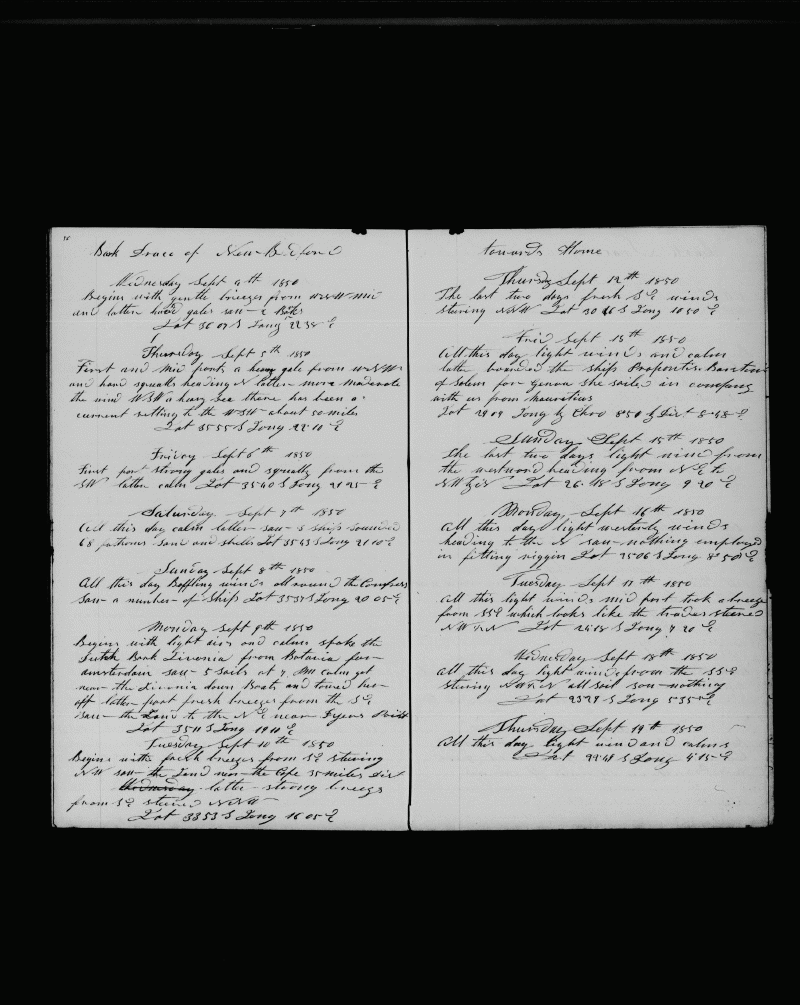 Bark Draco of New Bedford
Wednesday Sept 4th 1850
Begins with gentle breezes from WSW mid
and latter hard gales saw 2 Barks
Lat 36 07 S Long 22 38 E
Thursday Sept 5th 1850
First and Mid ports a heavy gale from WSW
and hard squalls heading N latter more moderate
the wind WSW a heavy Sea there has been a
current setting to the WSW about 50 miles
Lat 35 55 S Long 22 10 E
Friday Sept 6th 1850
First part strong gales and squally from the
SW latter calm Lat 35 40 S Long 21 25 E
Saturday Sept 7th 1850
All this day calm latter saw 5 ships sounded
68 fathoms sand and shells Lat 35 43 S Long 21 10 E
Sunday Sept 8th 1850
All this day Baffling winds all round the Compass
Saw a number of Ships Lat 35 37 S Long 20 05 E
Monday Sept 9th 1850
Begins with light airs and calms spoke the
Dutch Bark Livonia from Batavia for
amsterdam saw 5 Sails at 7 PM calm got
near the Livonia down Boats and towed her
off latter part fresh breezes from the SE
Saw the Land to the NE near Point
Lat 35 11 S Long 19 11 E
Tuesday Sept 10th 1850
Begins with fresh breezes from SE steering
NW saw the Land near the Cape 35 miles Dis
Wednesday latter strong breezes
from SE steered NNW
Lat 33 53 S Long 16 05 E
towards Home
Thursday Sept 12th 1850
The last two days fresh SE winds
steering NNW Lat 30 46 S Long 10 50 E
Frid Sept 13th 1850
All this day light winds and calm
latter boarded the ship Propontis
of Salem for Genoa she sailed in company
with us from Mauritius
Lat 29 09 Long by Chro 8 50 by Dist 8-48 E
Sunday Sept 15th 1850
The last two days light wind from
the westward heading from N E to
NW Lat 26 48 S Long 9 20 E
Monday Sept 16th 1850
All this day light westerly winds
heading to the N saw nothing employed
in fitting riggin Lat 25 06 S Long 8 50 E
Tuesday Sept 17th 1850
All this light winds mid part took a breeze
from SSE which looks like the trades steered
NW Lat 24 18 S Long 7 20 E
Wednesday Sept 18th 1850
All this day light winds from the SSE
steering all sail saw nothing
Lat 23 29 S Long 5 35 E
Thursday Sept 19th 1850
All this day light wind and calms
Lat 22 48 S Long 4 15 E